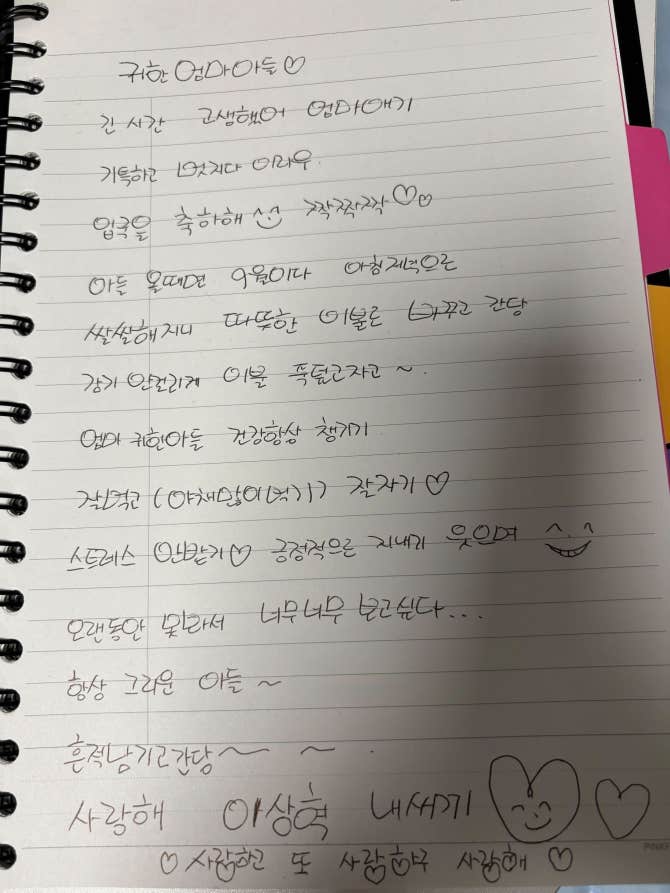 귀한 엄마아들♡
긴 시간 고생했어 엄마애기
기특하고 멋지다 이라우.
입국을 축하해 ^.^ 짝짝짝♡♡
아들 올때면 9월이다 아침저녁으로
쌀쌀해지니 따뜻한 이불로 바꾸고 간당
감기 안걸리게 이불 푹덮고자고~.
엄마 귀한아들 건강항상 챙기기
잘먹고(야채많이먹기) 잘자기♡
스트레스 안받기♡ 긍정적으로 지내기 웃으며 ^.^
오랜동안 못봐서 너무너무 보고싶다...
항상 그리운 아들~
흔적남기고간당~ ~.
사랑해 이상혁 내새끼 ♡♡
♡사랑하고 또 사랑하구 사랑해♡